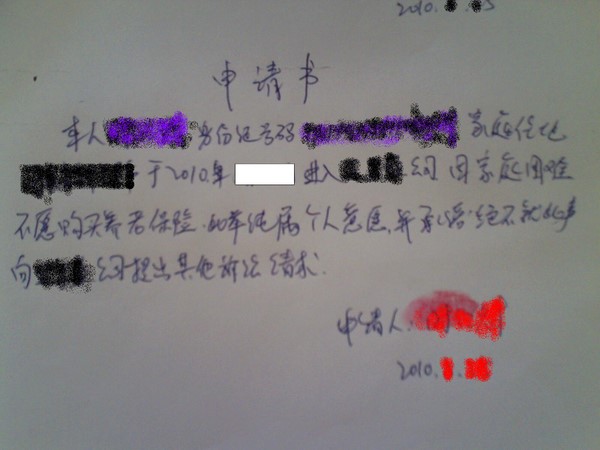 2010.
申请书
本人 身份证号码 家庭住地
于2010年 进入 公司 因家庭困难
不愿购买养老保险.此举纯属个人意愿,并承诺绝不就此事
向 公司提出其他诉讼请求.
申请人:
2010.